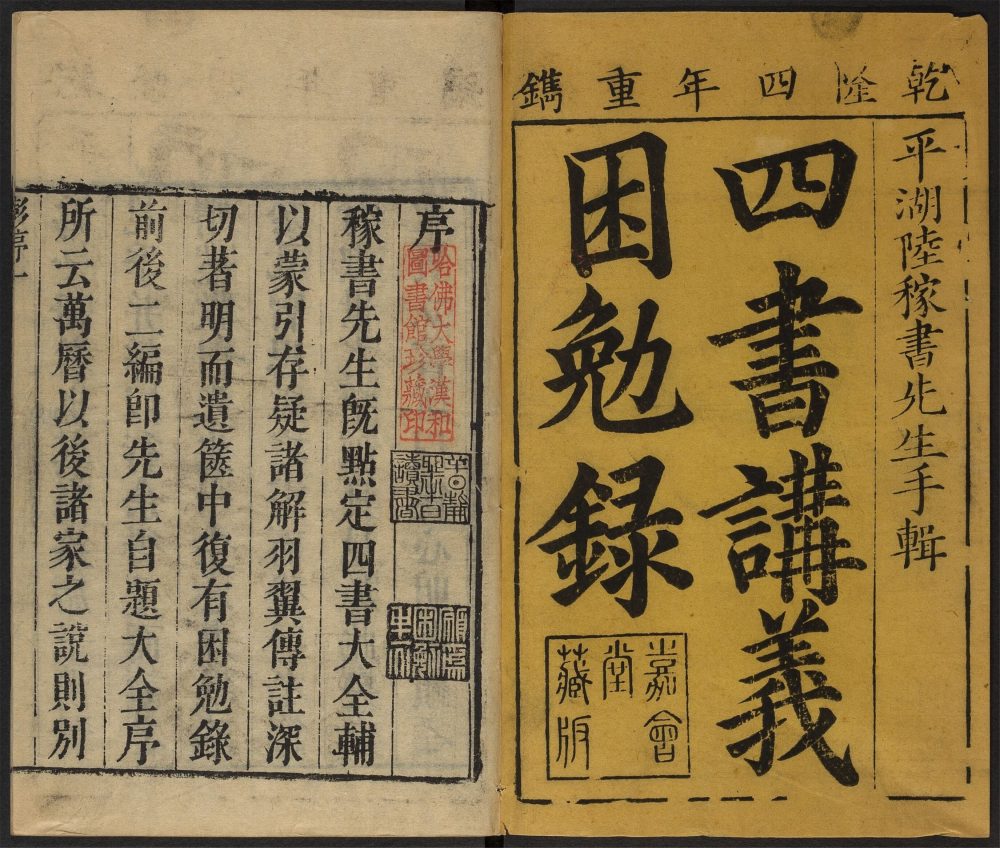 乾隆四年重鐫
平湖陸稼書先生手輯
四書講義
困勉録
嘉會
堂
藏版
序
哈佛大學漢和
圖書館珍藏印
稼書先生旣點定四書大全輔
以蒙引存疑諸解羽翼傳註深
切著明而遺篋中復有困勉錄
前後二編卽先生自題大全序
所云萬曆以後諸家之說則別
彭序一